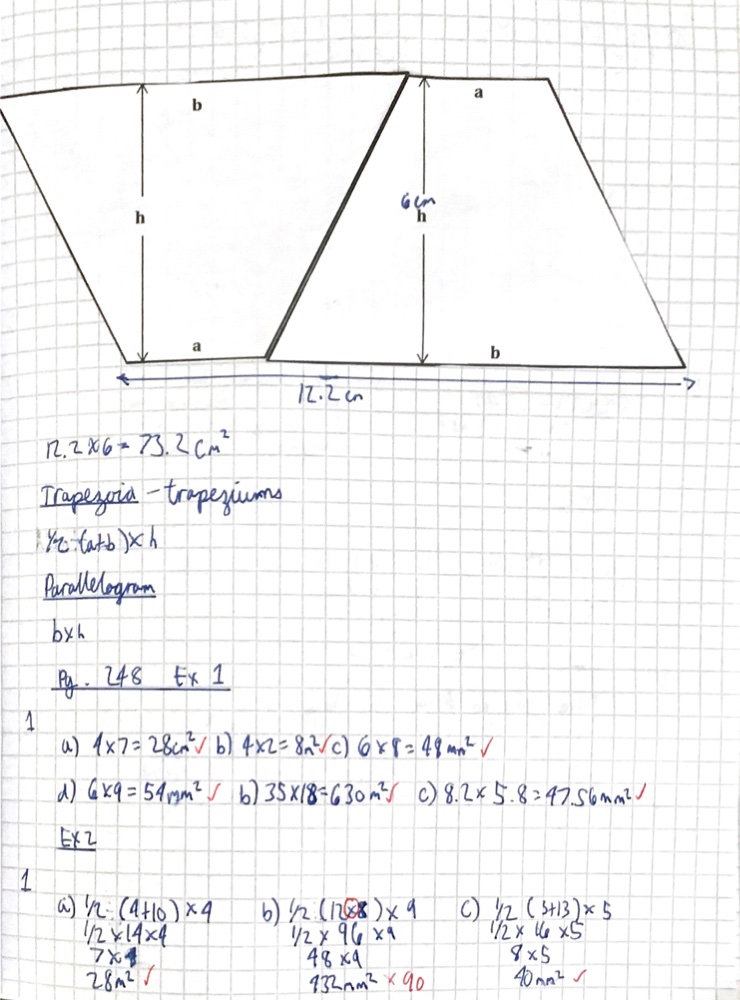 b
a
h
6cm
h
a
b
12.2 cm
12.2 × 6 = 73.2 cm²
Trapezoid - trapeziums
1/2 (a+b) × h
Parallelogram
b×h
Pg. 248 Ex 1
1
a) 4×7 = 28cm² ✓ b) 4×2 = 8m² ✓ c) 6×8 = 48mm² ✓
d) 6×9 = 54mm² ✓ b) 35×18 = 630m² ✓ c) 8.2 × 5.8 = 47.56mm² ✓
Ex 2
1
a) 1/2 (4+10) × 4 b) 1/2 (12×8) × 9 c) 1/2 (3+13) × 5
1/2 × 14 × 4 1/2 × 96 × 9 1/2 × 16 × 5
7×4 48 × 9 8 × 5
28m² ✓ 432mm² × 90 40mm² ✓